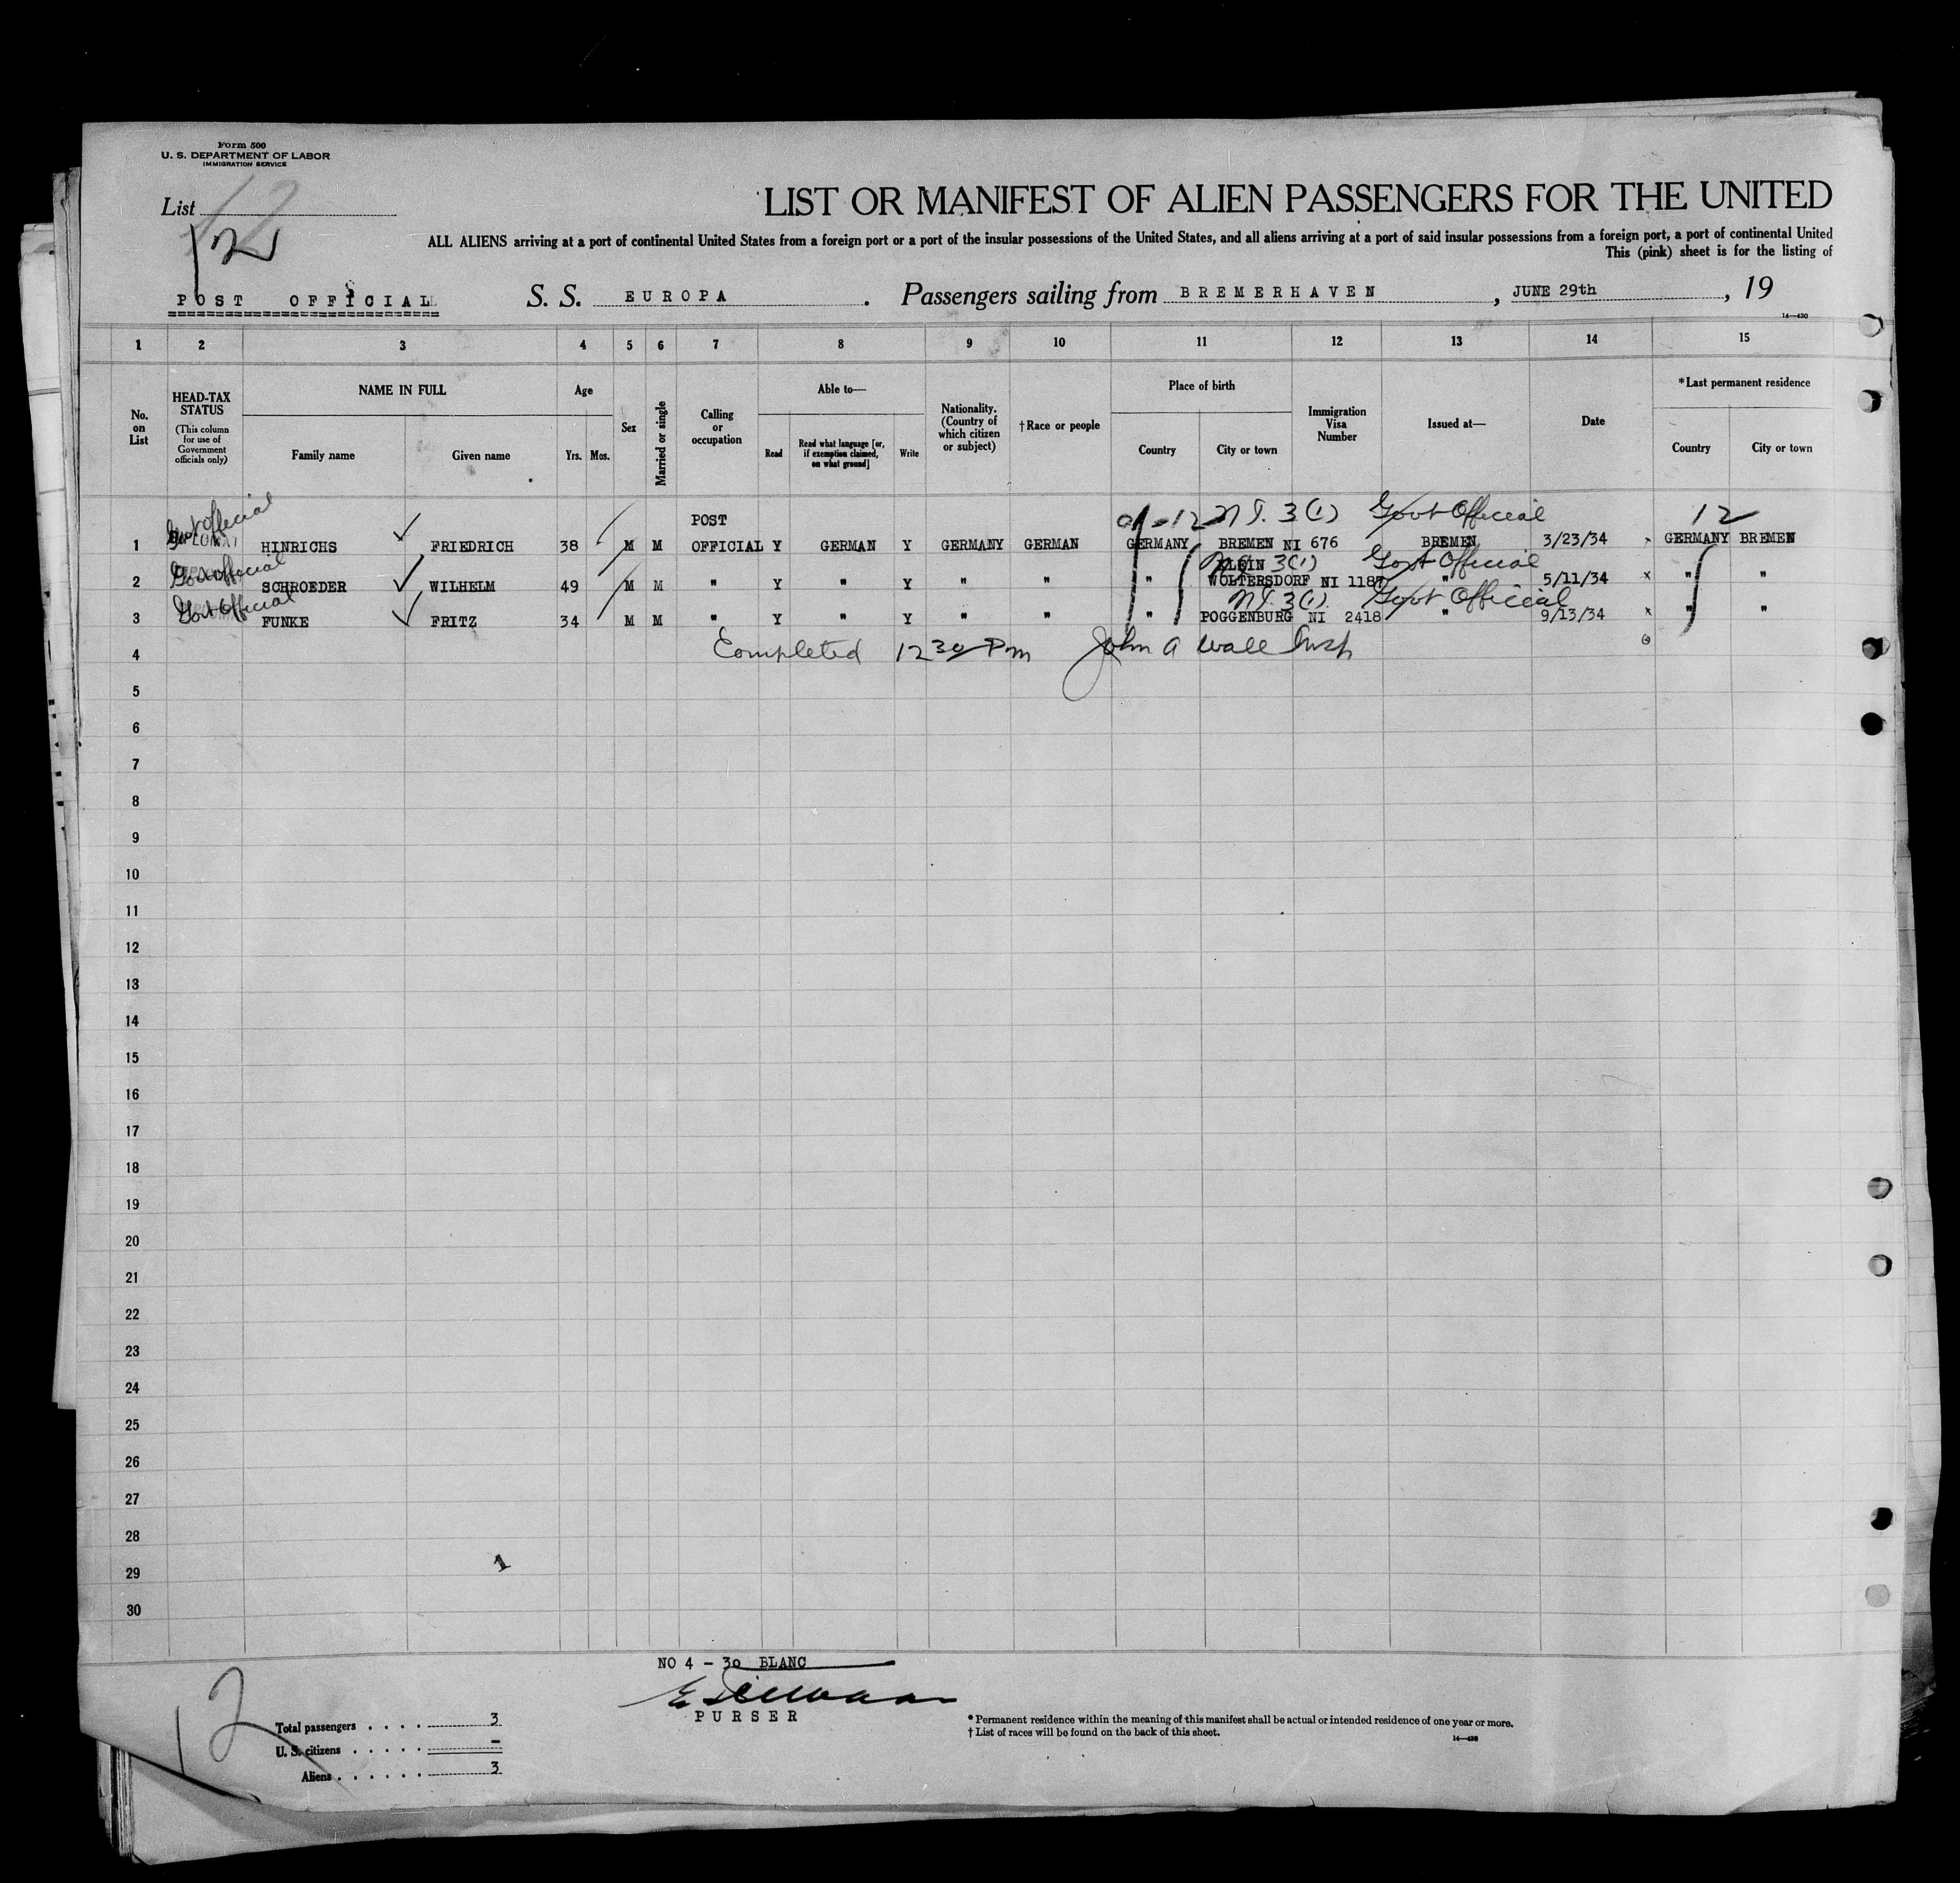 Form 500
U. S. DEPARTMENT OF LABOR
IMMIGRATION SERVICE
List 12
12
LIST OR MANIFEST OF ALIEN PASSENGERS FOR THE UNITED
ALL ALIENS arriving at a port of continental United States from a foreign port or a port of the insular possessions of the United States, and all aliens arriving at a port of said insular possessions from a foreign port, a port of continental United
This (pink) sheet is for the listing of
POST OFFICIAL S. S. EUROPA . Passengers sailing from BREMERHAVEN , JUNE 29th , 19
14—430
1 2 3 4 5 6 7 8 9 10 11 12 13 14 15
No. on List HEAD-TAX STATUS (This column for use of Government officials only) NAME IN FULL Family name Given name Age Yrs. Mos. Sex Married or single Calling or occupation Able to— Read Read what language [or, if exemption claimed, on what ground] Write Nationality. (Country of which citizen or subject) †Race or people Place of birth Country City or town Immigration Visa Number Issued at— Date *Last permanent residence Country City or town
Govt Official POST 3(1) Govt Official 12
1 HINRICHS FRIEDRICH 38 M M OFFICIAL Y GERMAN Y GERMANY GERMAN GERMANY BREMEN NI 676 BREMEN 3/23/34 x GERMANY BREMEN
Govt Official KLEIN 3(1) Govt Official
2 SCHROEDER WILHELM 49 M M " Y " Y " " " WOLTERSDORF NI 1187 " 5/11/34 x " "
Govt Official 3(1) Govt Official
3 FUNKE FRITZ 34 M M " Y " Y " " " POGGENBURG NI 2418 " 9/13/34 x " "
4 Completed 12 30 Pm John A Wall Insp
5
6
7
8
9
10
11
12
13
14
15
16
17
18
19
20
21
22
23
24
25
26
27
28
29 1
30
NO 4 - 30 BLANC
PURSER
12
Total passengers . . . . 3
U. S. citizens . . . . . -
Aliens . . . . . . 3
* Permanent residence within the meaning of this manifest shall be actual or intended residence of one year or more.
† List of races will be found on the back of this sheet.
14—430